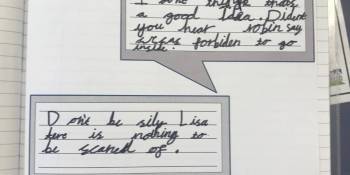 I dont think thats
a good idea. Dident
you hear robin say
forbiden to go
inside.
Dont be sily Lisa
there is nothing to
be scared of.